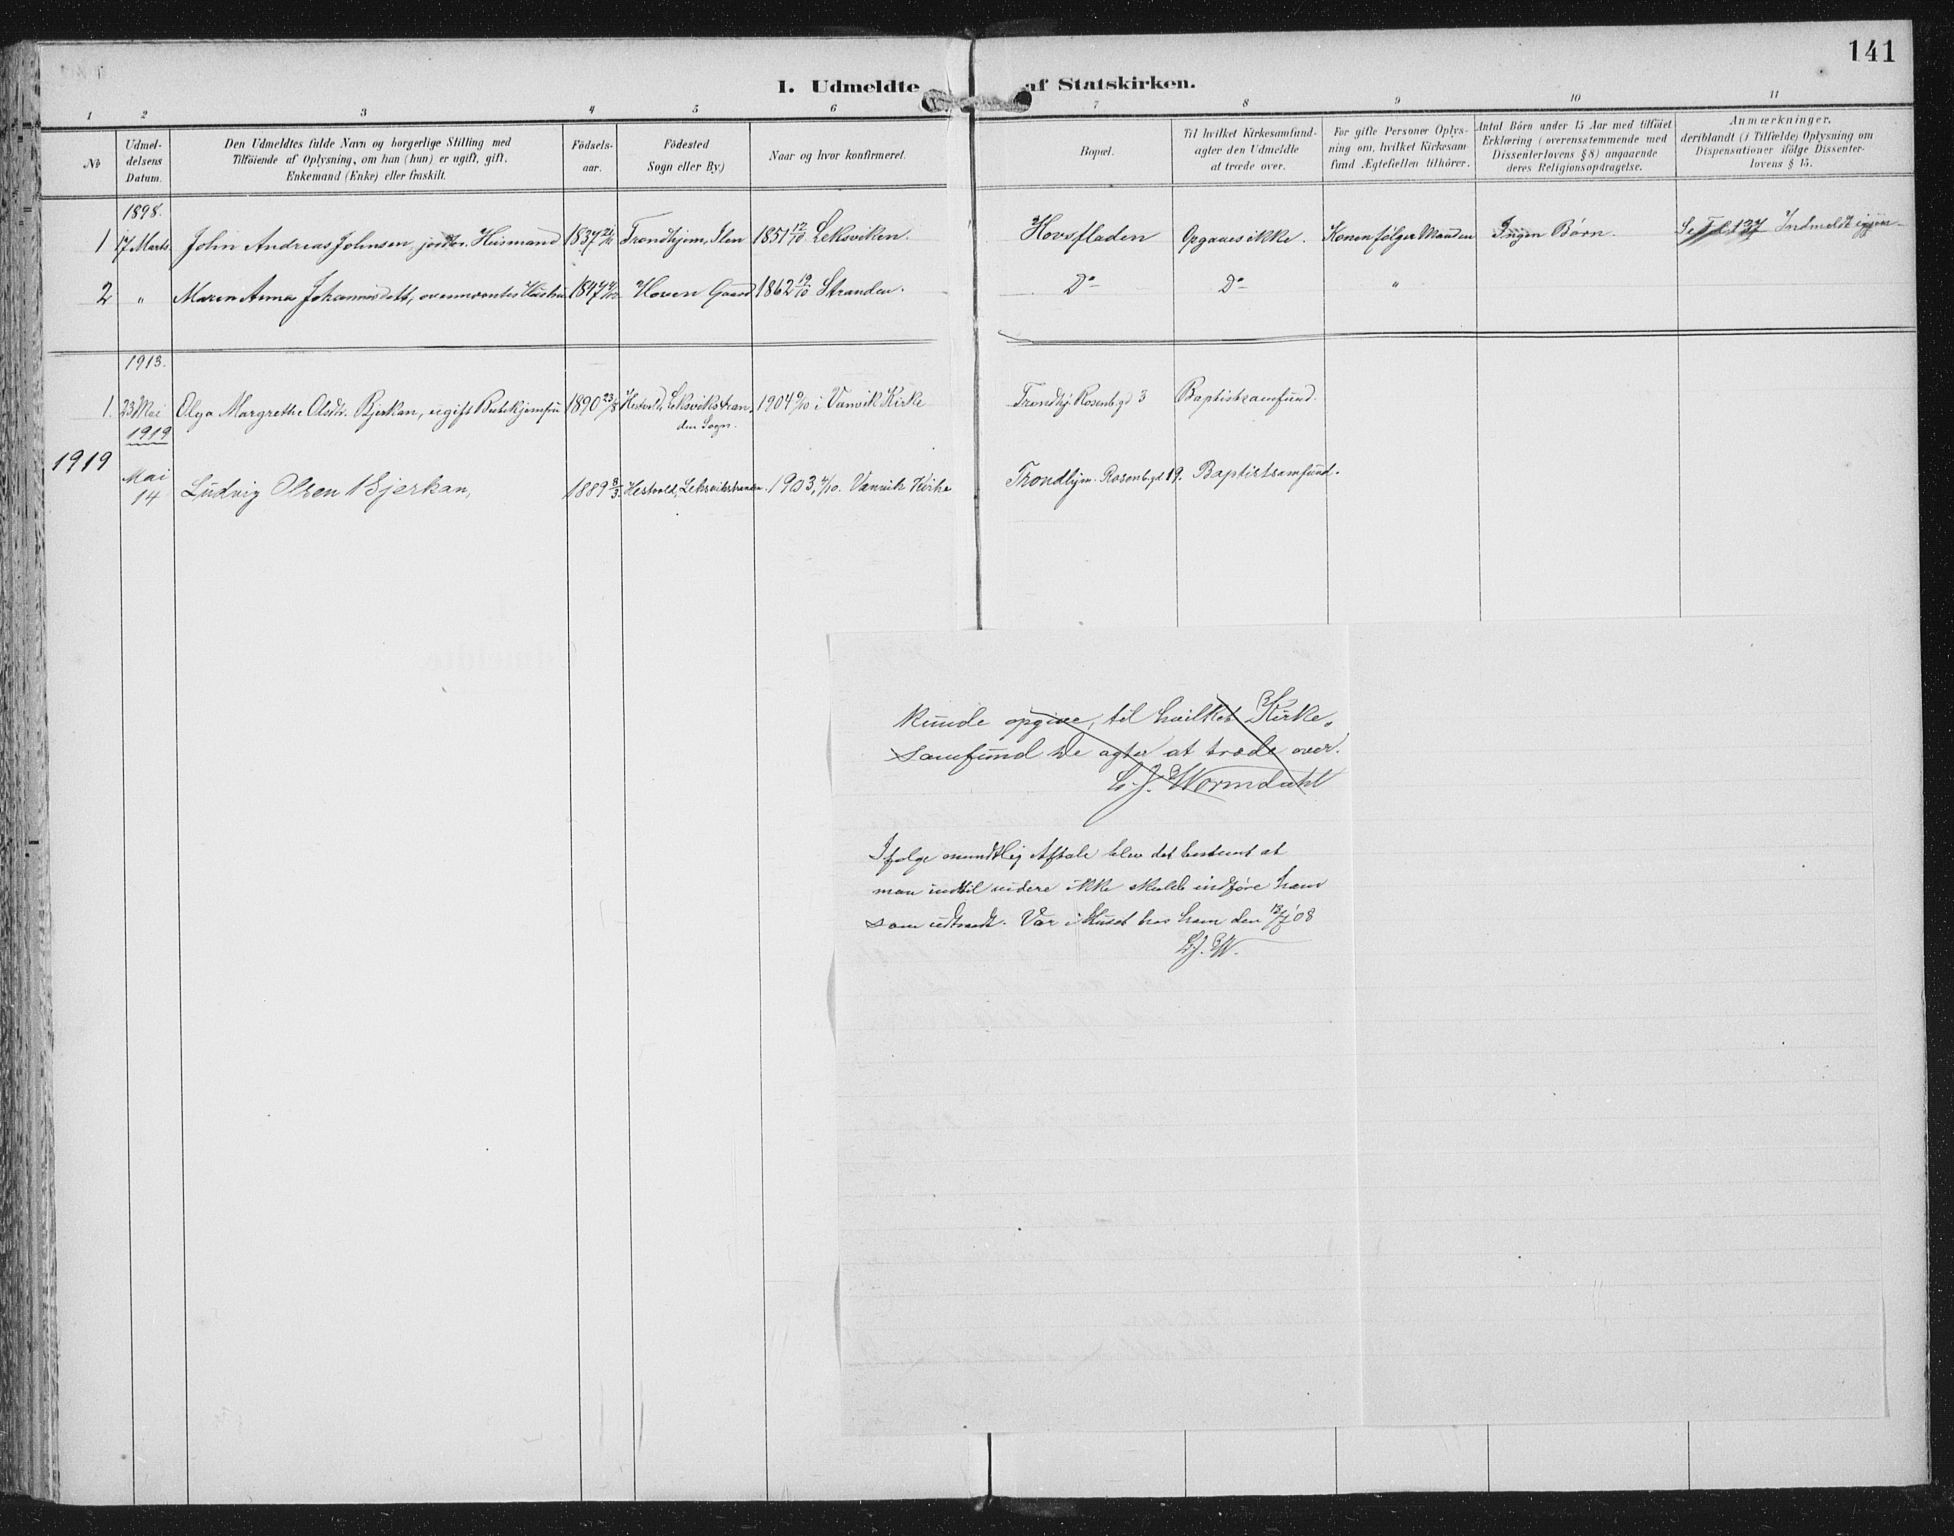 141
I. Udmeldte af Statskirken.
1 2 3 4 5 6 7 8 9 10 11
No
Udmel-
delsens
Datum.
Den Udmeldtes fulde Navn og borgerlige Stilling med
Tilföiende af Oplysning, om han (hun) er ugift, gift,
Enkemand (Enke) eller fraskilt.
Födsels-
aar.
Födested
Sogn eller By)
Naar og hvor konfirmeret.
Bopæl.
Til hvilket Kirkesamfund
agter den Udmeldte
at træde over.
For gifte Personer Oplys-
ning om, hvilket Kirkesam-
fund Ægtefællen tilhörer.
Antal Börn under 15 Aar med tilföiet
Erklæring (overensstemmende med
Dissenterlovens § 8) angaaende
deres Religionsopdragelse.
Anmærkninger,
deriblandt (i Tilfælde) Oplysning om
Dispensationer ifölge Dissenter-
lovens § 15.
1898.
1 17 Marts. John Andreas Johnsen, Husmand 1837 Trondhjem, Ilen 1851 12/10 Leksviken. Hovsfladen Opgaves ikke. Konen følger Manden Ingen Børn. Se 137 Indmeldt igjen
2 " Maren Anna Johannesdatt, ovennævntes Hustru 1847 Hoven Gaard 1862 19/10 Stranden. Do Do "
1913.
1. 23 Mai Olga Margrethe Olsdtr. Bjerkan, ugift Butikjomfru 1890 23/8 Hestvold, Leksvikstran 1904 i Vanvik Kirke Trondhj. Rosenb.gd 3 Baptistsamfund.
den Sogn.
1919
1919
Mai
14 Ludvig Olsen Bjerkan, 1889 8/3 Hestvold, Leksvikstranden. 1903, 4/10. Vanvik Kirke Trondhjm. Rosenb.gd 19. Baptistsamfund.
kunde opgive, til hvilket Kirke-
samfund De agter at træde over.
L. J. Wormdahl
Ifølge mundtlig Aftale blev det bestemt at
man indtil videre ikke skulde indføre ham
som udtraadt. Var i Huset hos ham den 13/7 08
L.J.W.